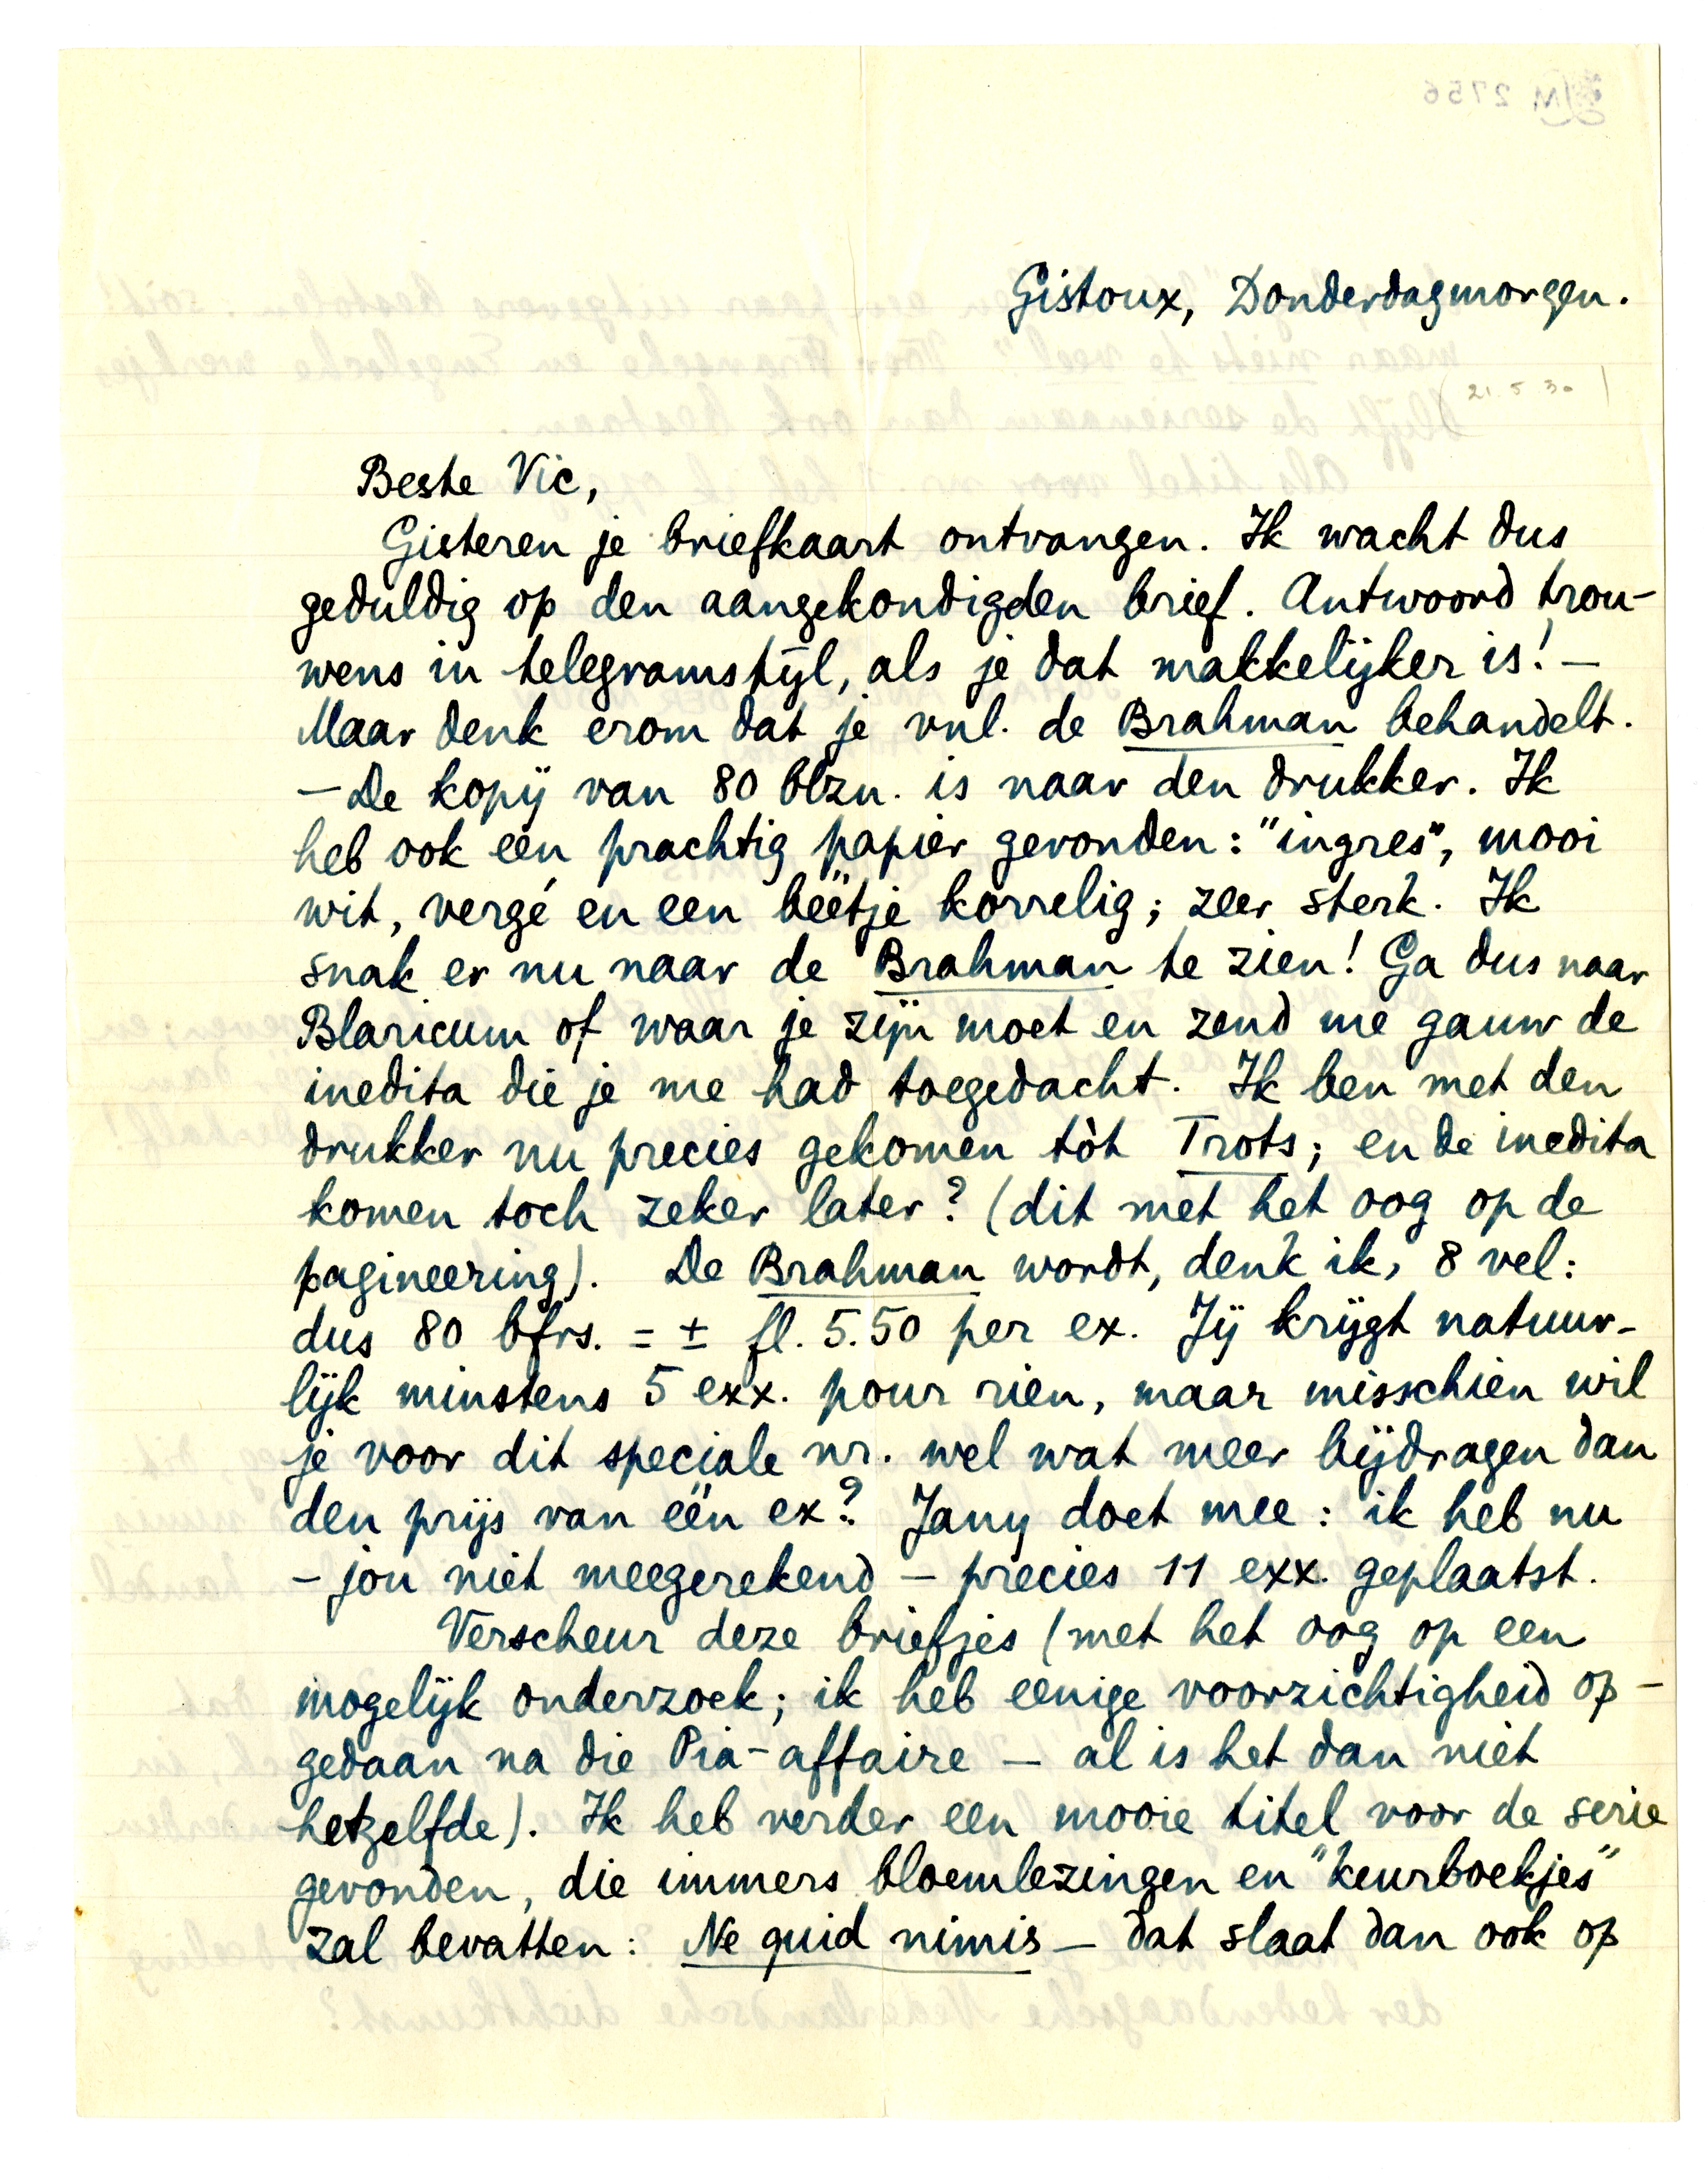 Gistoux, Donderdagmorgen.
(21.5.30)
Beste Vic,
Gisteren je briefkaart ontvangen. Ik wacht dus
geduldig op den aangekondigden brief. Antwoord trou-
wens in telegramstijl, als je dat makkelijker is! —
Maar denk erom dat je vnl. de Brahman behandelt.
— De kopij van 80 blzn. is naar den drukker. Ik
heb ook een prachtig papier gevonden: "ingres", mooi
wit, vergé en een beetje korrelig; zeer sterk. Ik
snak er nu naar de Brahman te zien! Ga dus naar
Blaricum of waar je zijn moet en zend me gauw de
inedita die je me had toegedacht. Ik ben met den
drukker nu precies gekomen tòt Trots; en de inedita
komen toch zeker later? (dit met het oog op de
pagineering). De Brahman wordt, denk ik, 8 vel:
dus 80 bfrs. = ± fl. 5.50 per ex. Jij krijgt natuur-
lijk minstens 5 exx. pour rien, maar misschien wil
je voor dit speciale nr. wel wat meer bijdragen dan
den prijs van één ex? Jany doet mee: ik heb nu
- jou niet meegerekend - precies 11 exx. geplaatst.
Verscheur deze briefjes (met het oog op een
mogelijk onderzoek; ik heb eenige voorzichtigheid op-
gedaan na die Pia-affaire — al is het dan niet
hetzelfde). Ik heb verder een mooie titel voor de serie
gevonden, die immers bloemlezingen en "keurboekjes"
zal bevatten: Ne quid nimis — dat slaat dan ook op